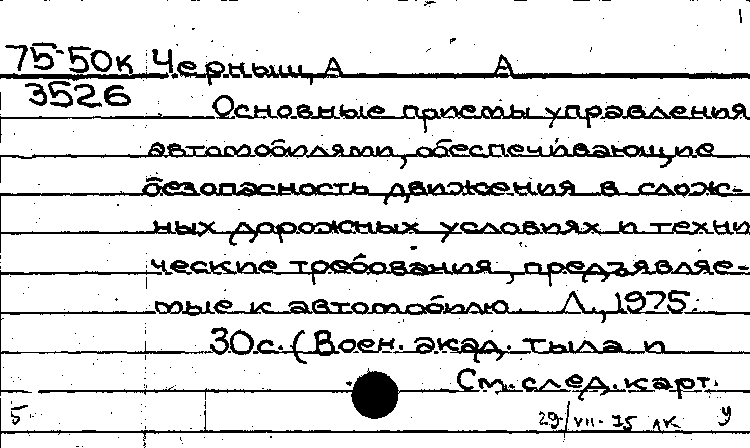 75-50к Черныш, А А
3526
Основные приемы управления
автомобилями, обеспечивающие
безопасность движения в слож-
ных дорожных условиях и техни
ческие требования, предъявляе-
мые к автомобилю. Л., 1975.
30с. (Воен. акад. тыла и
См. след. карт.
5 29/VII-75 лк у